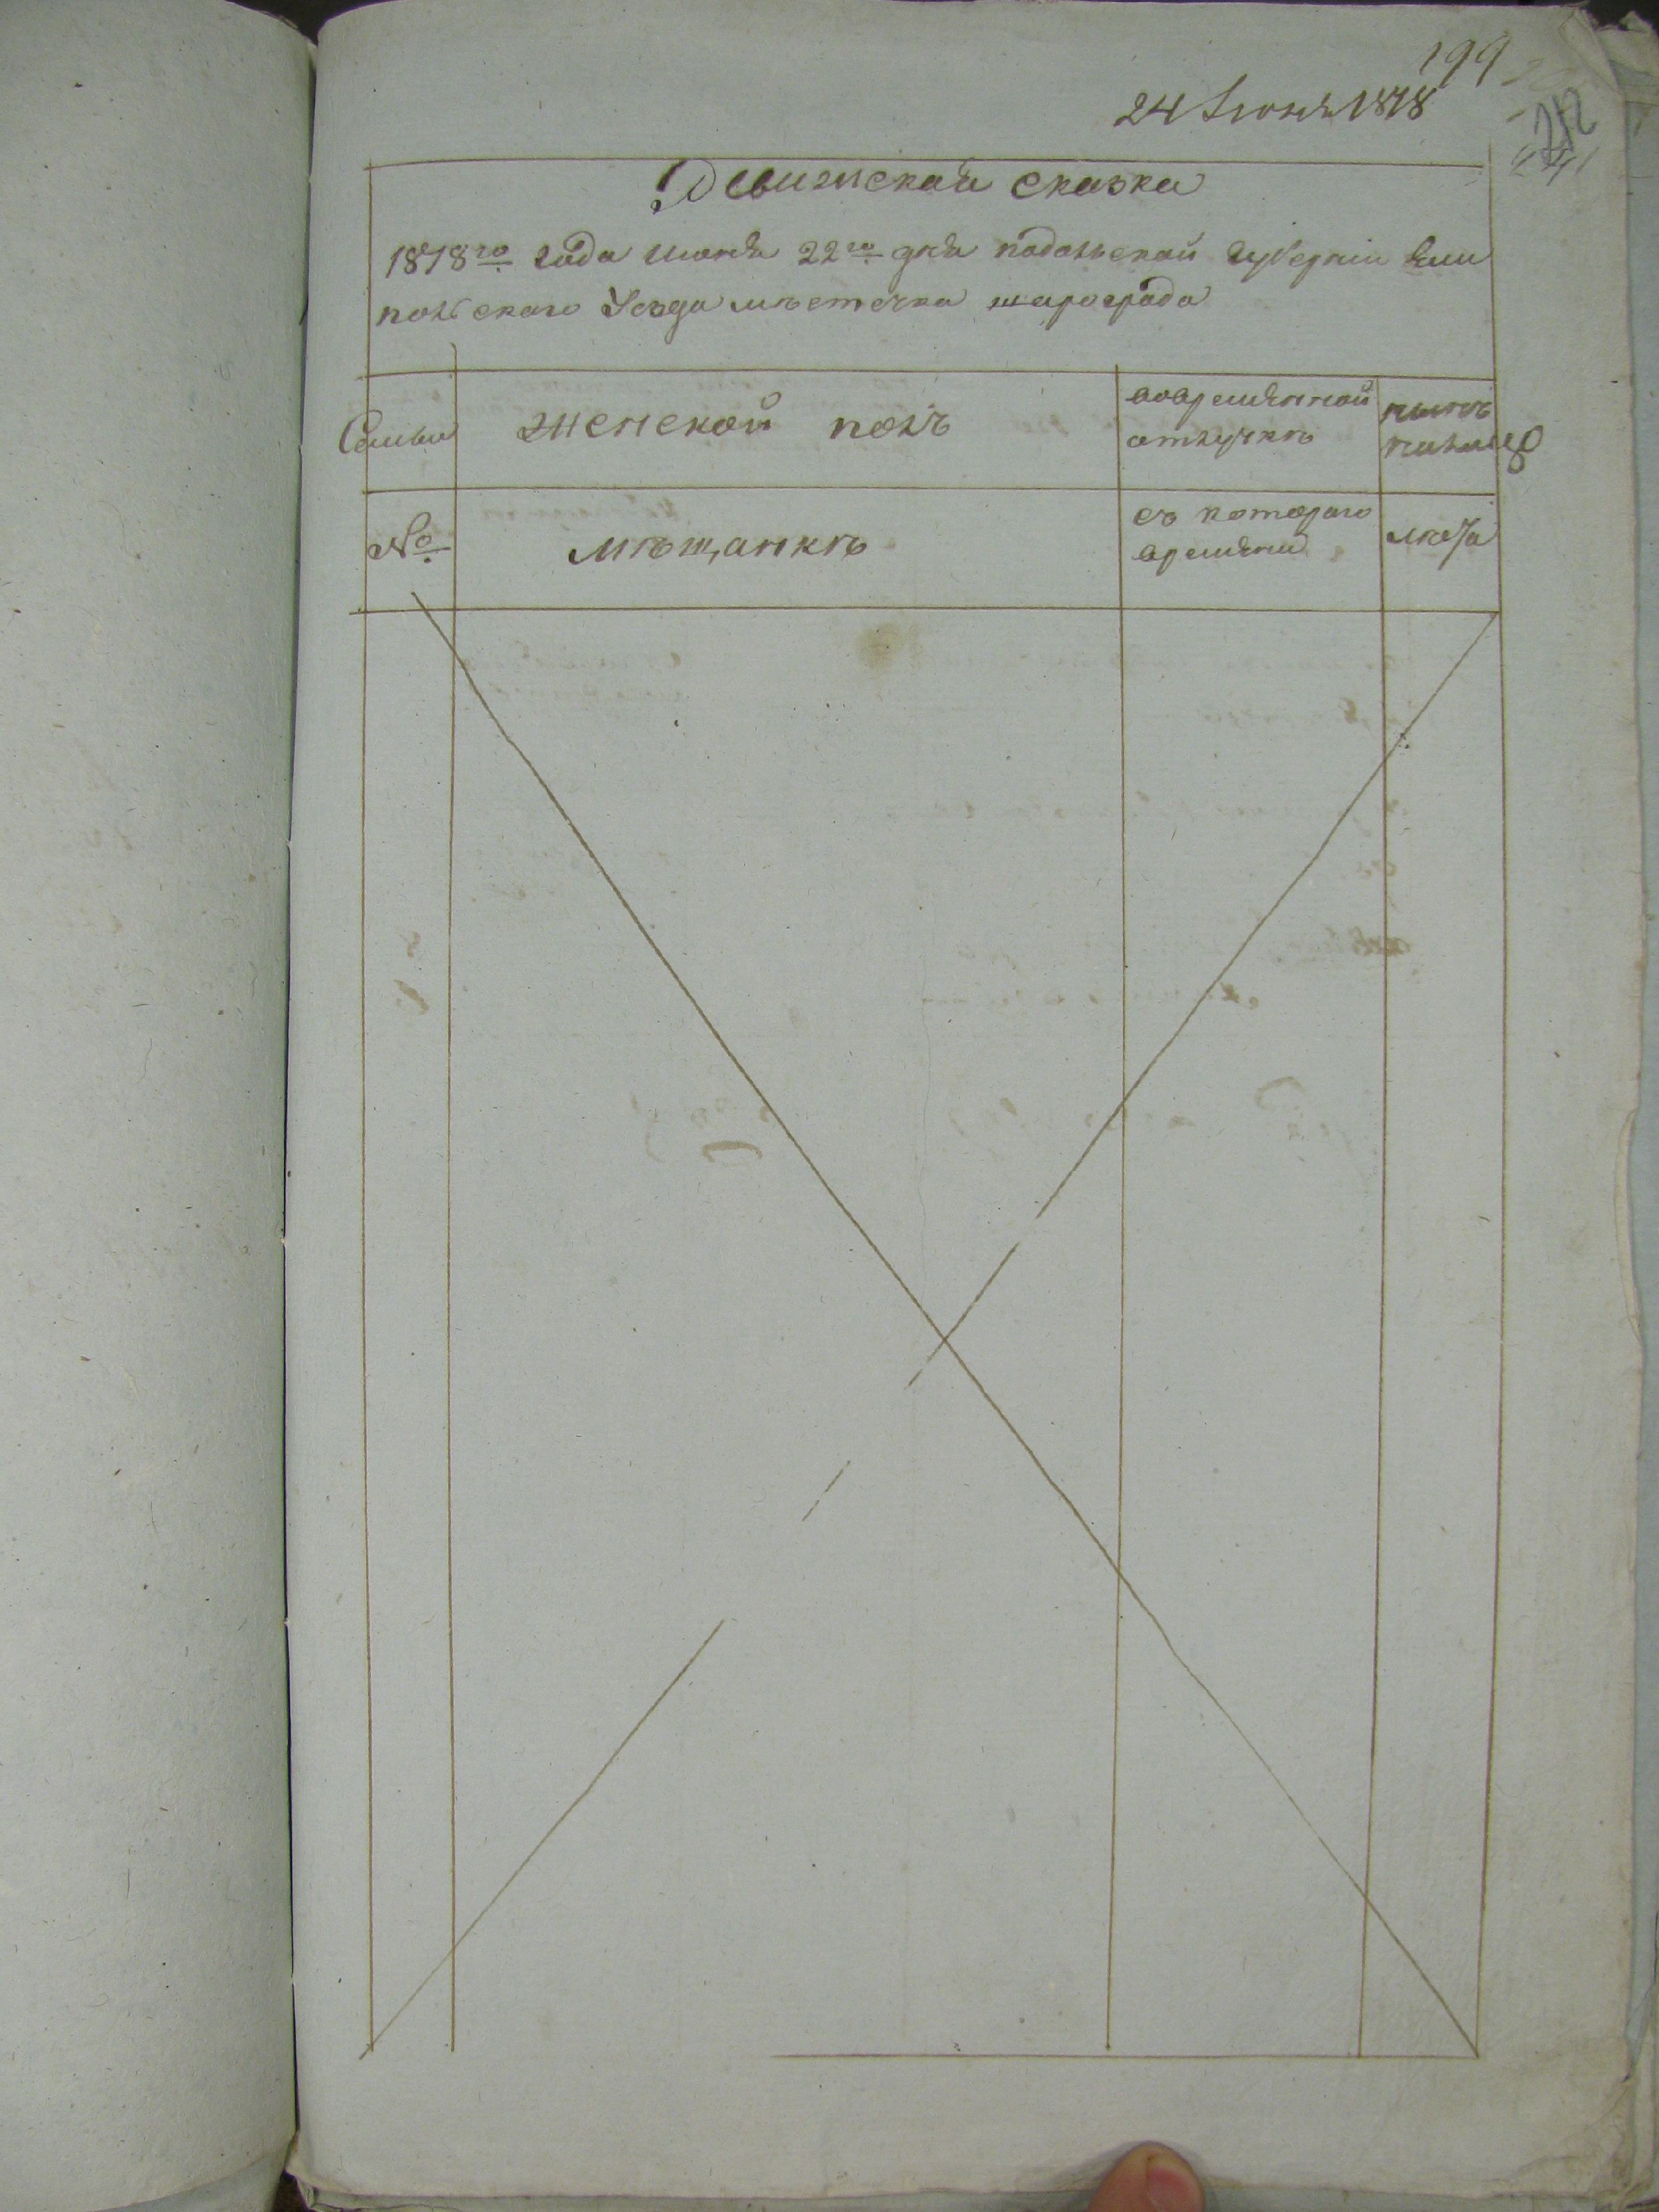 199
24 Июня 1818
212
Ревижская сказка
1818го года июня 22го дня подольской губернии Ямпольского
Уезда местечка шарограда
Семьи
женской полъ
вовремянной
отлучкѣ
нынѣ
налицо
№
мѣщанкѣ
съ которого
времяни
лѣта